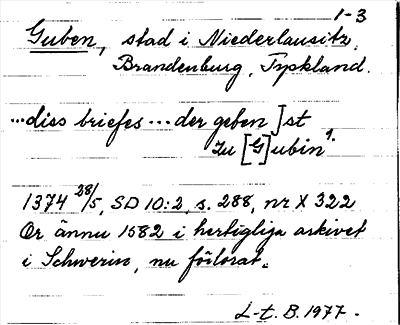 1-3
Guben, stad i Niederlausitz,
Brandenburg, Tyskland.
...diss briefes...der geben]st
zu [G]ubin¹.
1374 28/5, SD 10:2, s. 288, nr X 322
Or ännu 1582 i hertigliga arkivet
i Schwerin, nu förlorat.
L-t. B. 1977.